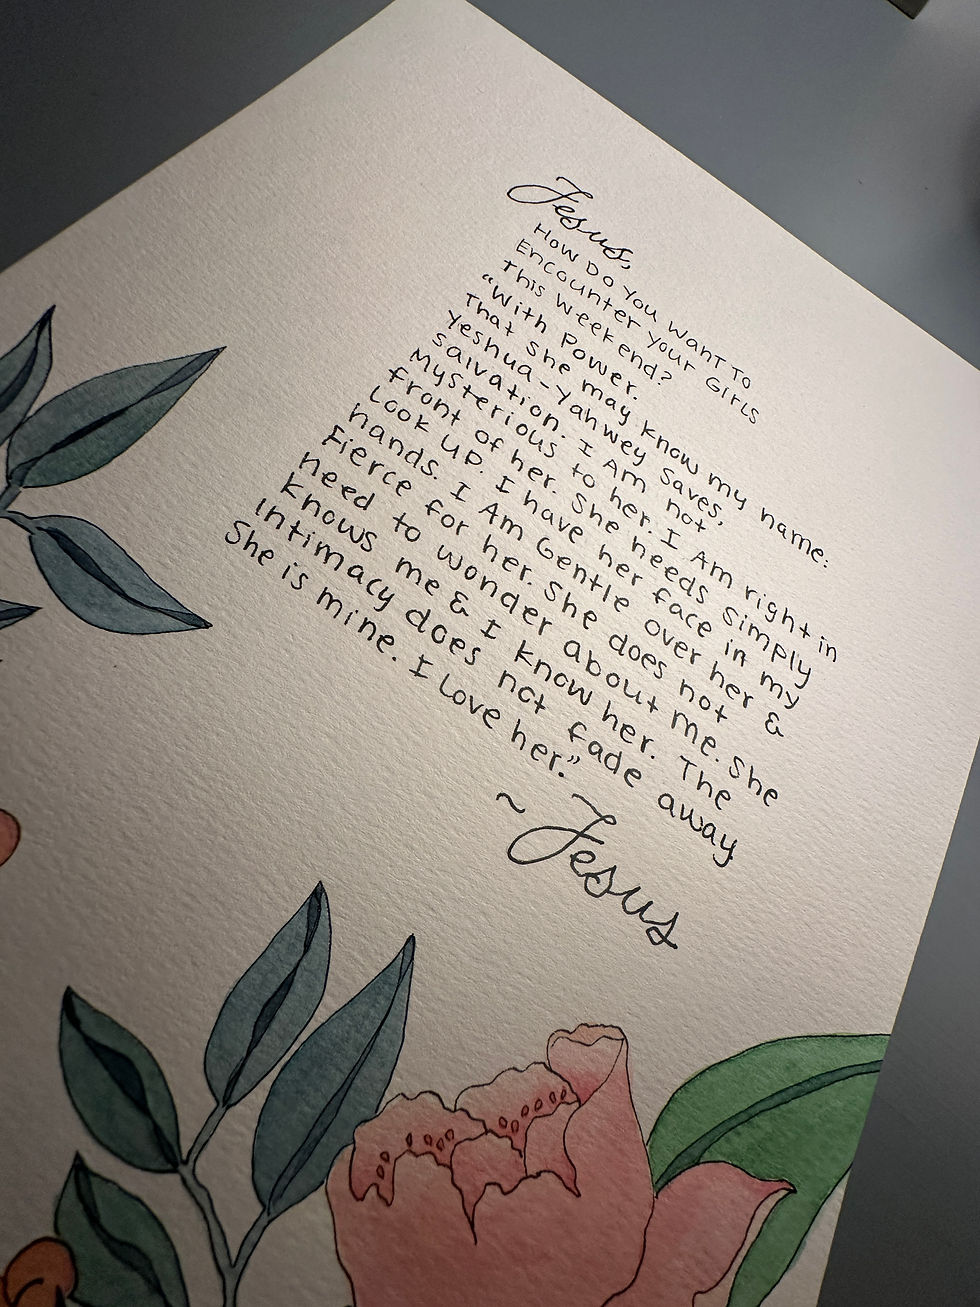 Jesus,
How Do You Want To
Encounter your Girls
This weekend?
"With Power.
That she may know my name:
Yeshua-Yahwey saves,
salvation. I Am not
Mysterious to her. I Am right in
front of her. She needs simply
Look up. I have her face in my
hands. I Am Gentle over her &
Fierce for her. She does not
need to wonder about me. She
knows me & I know her. The
Intimacy does not fade away
She is mine. I love her."
~ Jesus